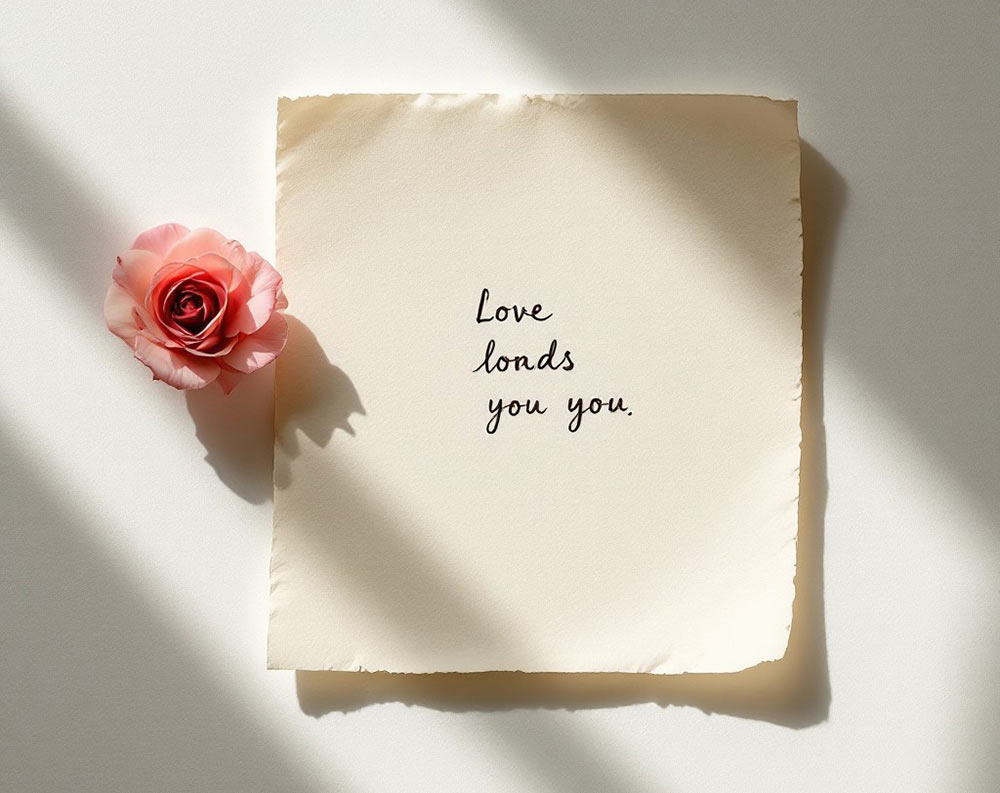 Love
londs
you you.